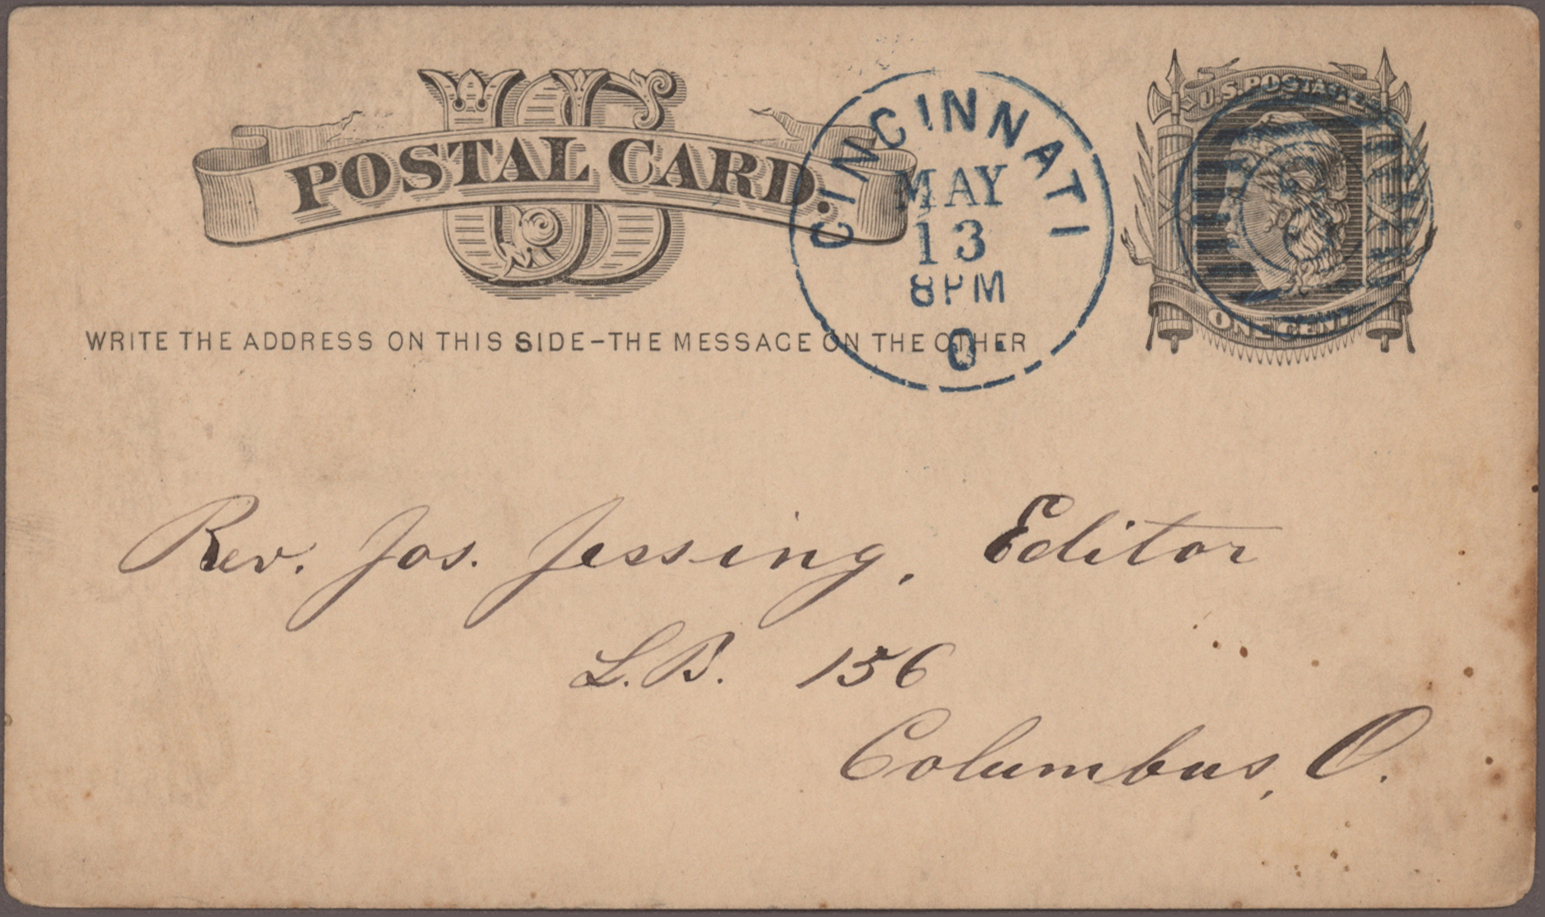 US
POSTAL CARD.
WRITE THE ADDRESS ON THIS SIDE-THE MESSAGE ON THE OTHER
CINCINNATI
MAY
13
8PM
O.
U.S. POSTAGE
ONE CENT
Rev. Jos. Jessing, Editor
L.B. 156
Columbus, O.